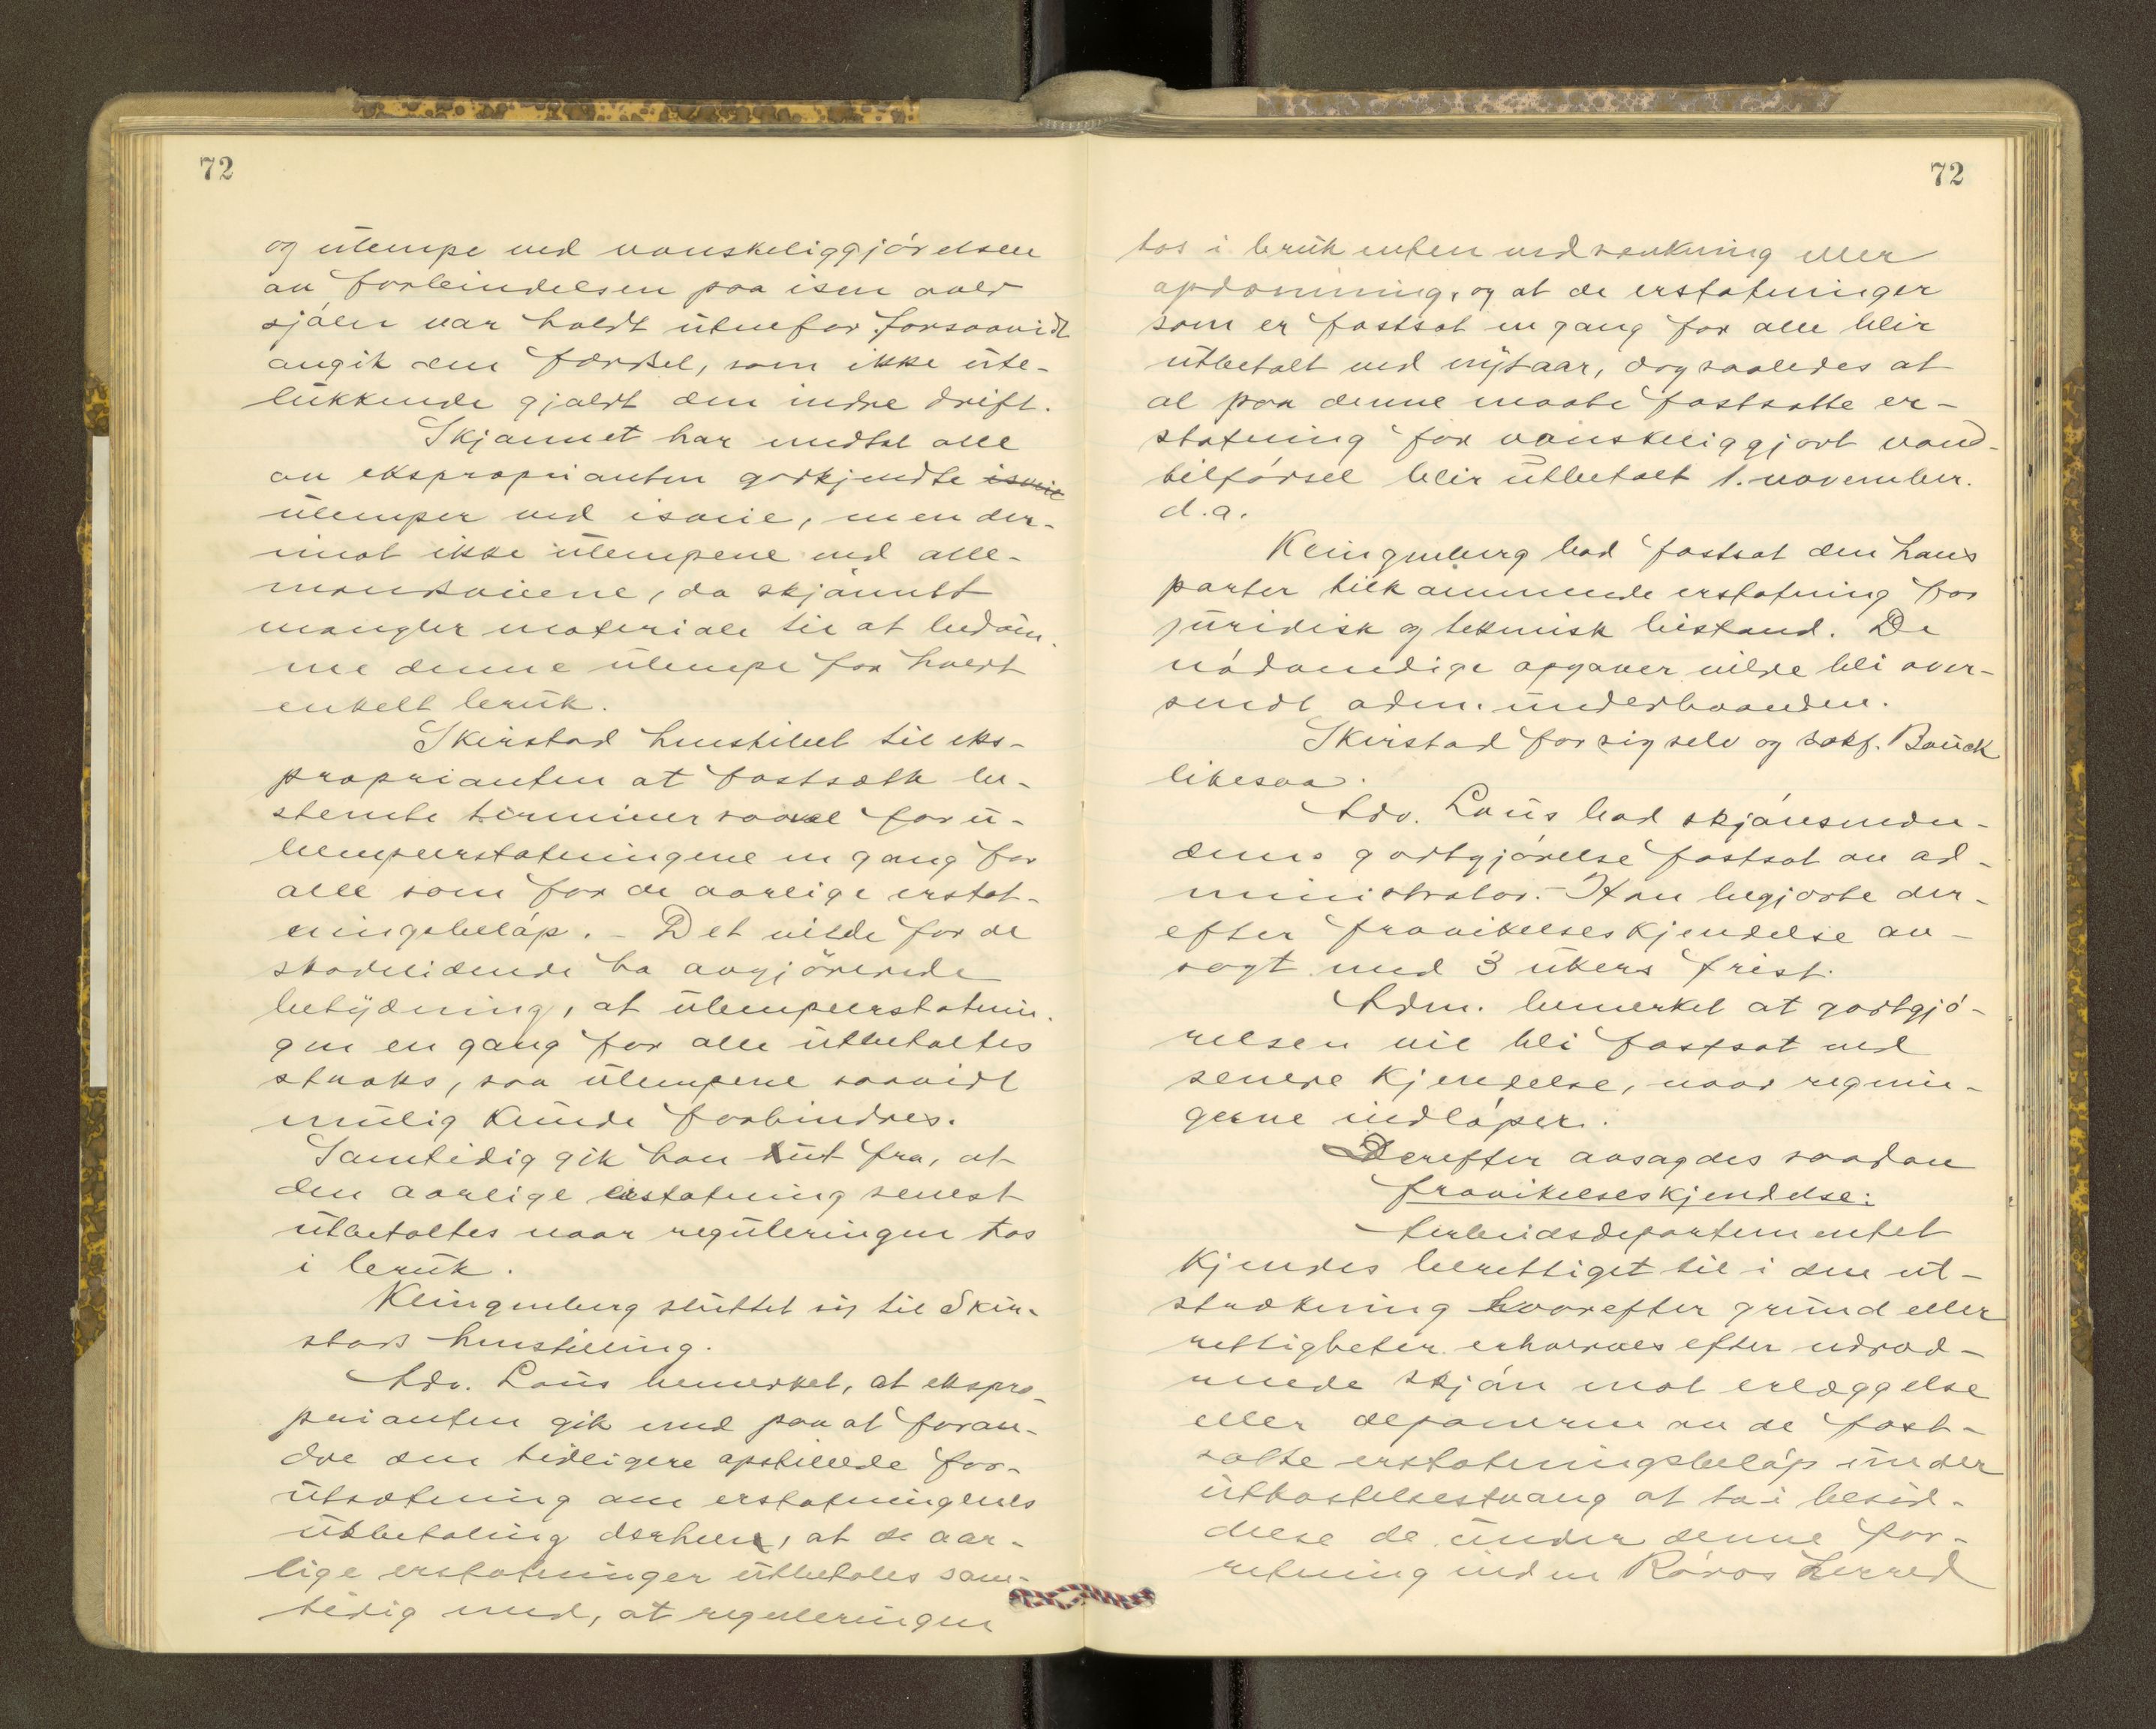 72
og ulempe ved vanskeliggjørelsen
av forbindelsen paa isen over
sjøen var holdt utenfor forsaavidt
angik den færdsel, som ikke ute-
lukkende gjaldt den indre drift.
Skjønnet har medtat alle
av eksproprianten godkjendte isveie
ulemper ved isveie, men der-
imot ikke ulempene ved alle-
mandsveiene, da skjønnet
mangler materiale til at bedøm-
me denne ulempe for hvert
enkelt bruk.
Skirstad henstillet til eks-
proprianten at fastsætte be-
stemte terminer saavel for u-
lempeerstatningene en gang for
alle som for de aarlige erstat-
ningsbeløp. – Det vilde for de
skadelidende ha avgjørende
betydning, at ulempeerstatnin-
gen en gang for alle utbetaltes
straks, saa ulempene saavidt
mulig kunde forhindres.
Samtidig gik han ut fra, at
den aarlige erstatning senest
utbetaltes naar reguleringen tas
i bruk.
Klingenberg sluttet sig til Skir-
stads henstilling.
Adv. Lous bemerket, at ekspro-
prianten gik med paa at foran-
dre den tidligere opstillede for-
utsætning om erstatningenes
utbetaling derhen, at de aar-
lige erstatninger utbetales sam-
tidig med, at reguleringen
72
tas i bruk enten ved sænkning eller
opdæmning, og at de erstatninger
som er fastsat en gang for alle blir
utbetalt ved nytaar, dog saaledes at
al paa denne maate fastsatte er-
statning for vanskeliggjort vand-
tilførsel blir utbetalt 1. november.
d.a.
Klingenberg bad fastsat den hans
parter tilkommende erstatning for
juridisk og teknisk bistand. De
nødvendige opgaver vilde bli over-
sendt adm. underhaanden.
Skirstad for sig selv og sakf. Bauck
likesaa.
Adv. Lous bad skjønsmæn-
denes godtgjørelse fastsat av ad-
ministrator. – Han begjærte der-
efter fravikelseskjendelse av-
sagt med 3 ukers frist.
Adm. bemerket at godtgjø-
relsen vil bli fastsat ved
senere kjendelse, naar regnin-
gerne indløper.
Derefter avsagdes saadan
fravikelseskjendelse:
Arbeidsdepartementet
kjendes berettiget til i den ut-
strækning hvorefter grund eller
rettigheter erhverves efter nedrad-
mede skjøn mot erlæggelse
eller deponeren av de fast-
satte erstatningsbeløp under
utkastelsestvang at ta i besid-
delse de under denne for-
retning inden Røros herred